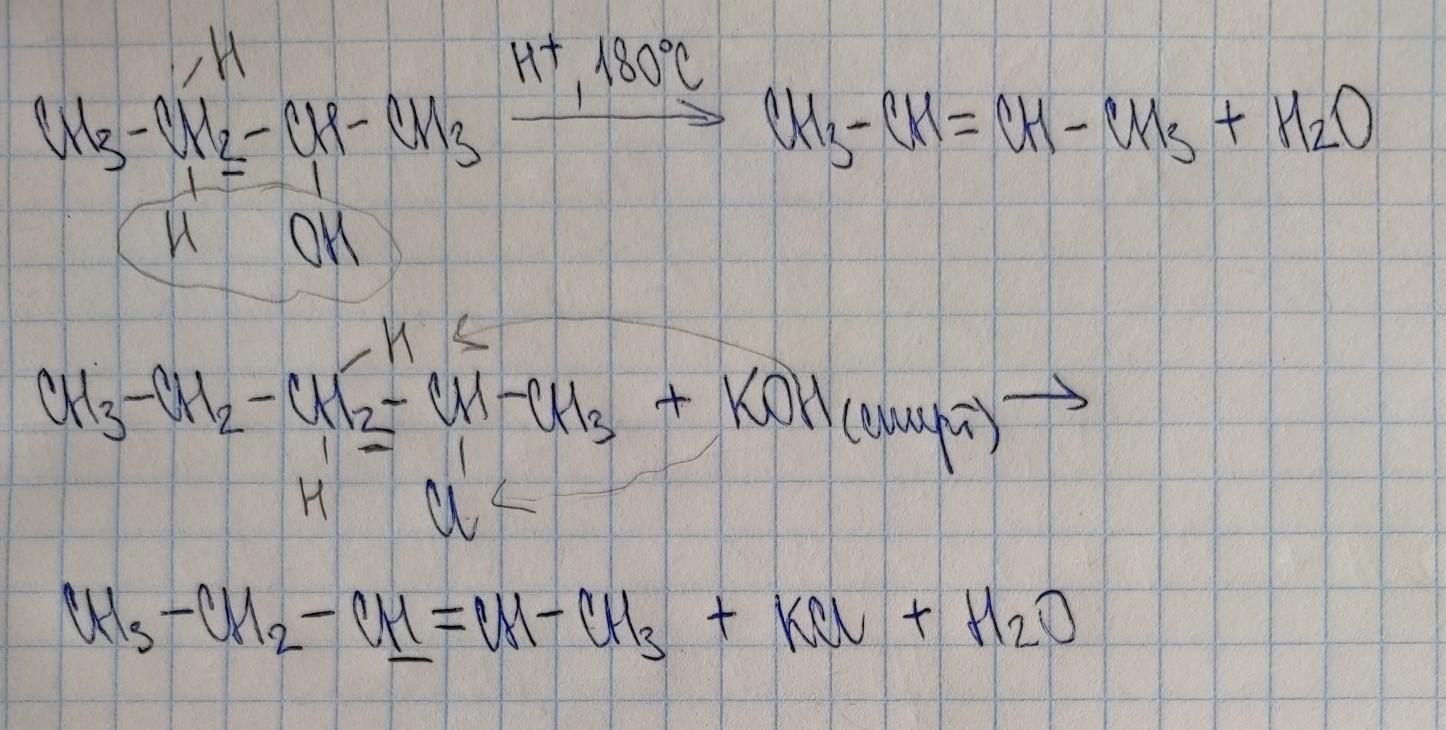 H
CH3-CH2-CH-CH3 H+, 180°C → CH3-CH=CH-CH3 + H2O
H OH
H
CH3-CH2-CH2-CH-CH3 + KOH(спирт) →
H Cl
CH3-CH2-CH=CH-CH3 + KCl + H2O